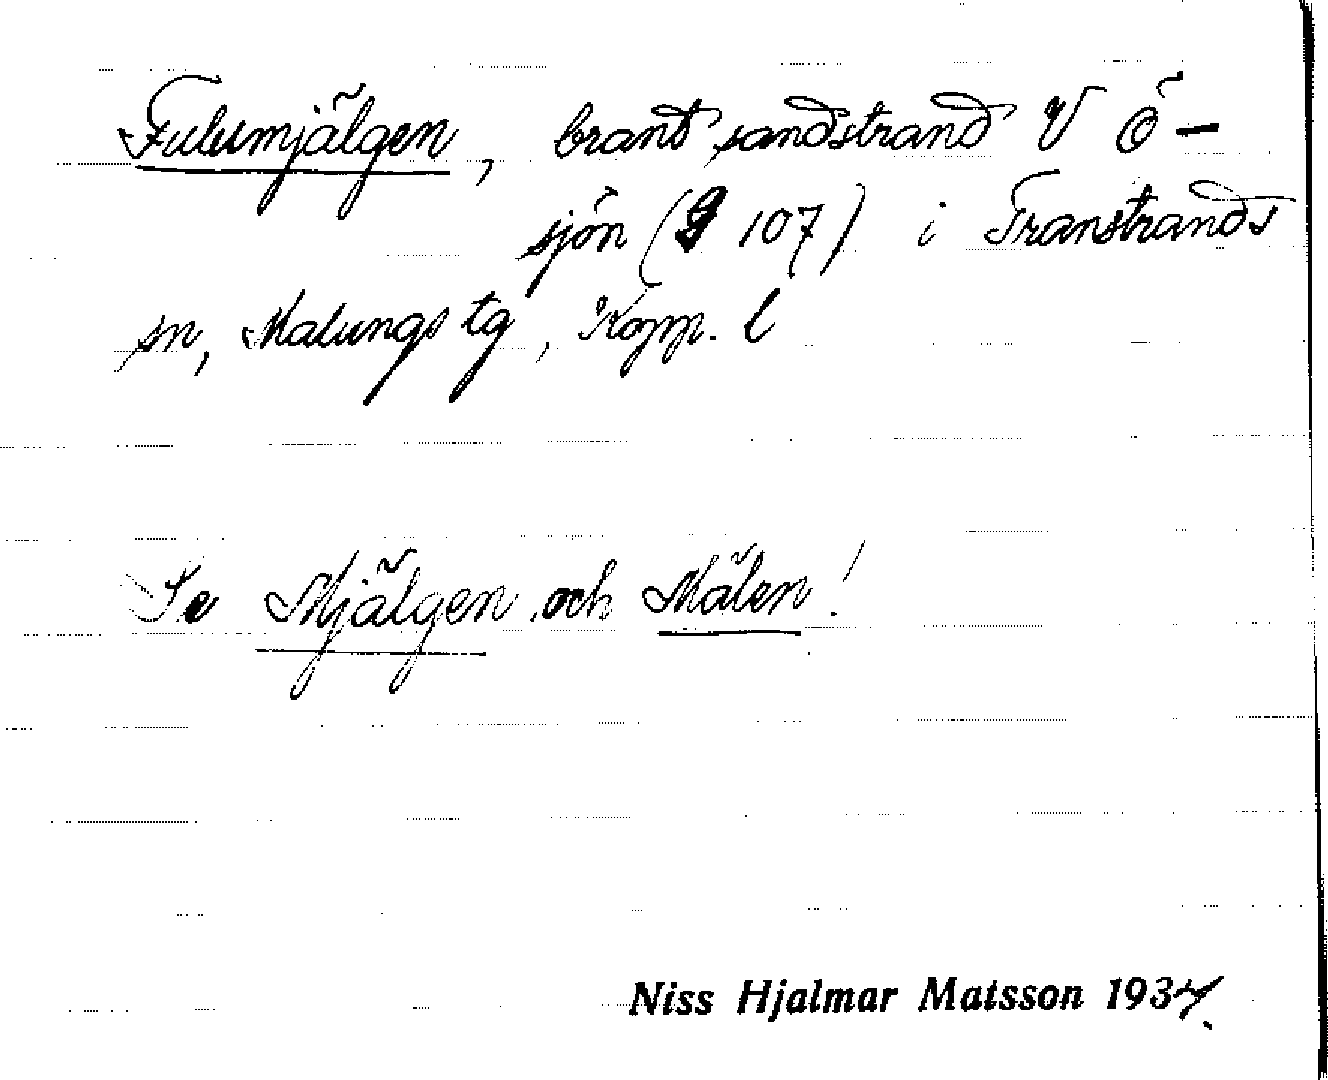 Fulumjälgen, brant sandstrand V Ö-
sjön (9 107) i Transtrands
sn, Malungs tg, Kopp. l
Se Mjälgen och Mälen!
Niss Hjalmar Matsson 1934.